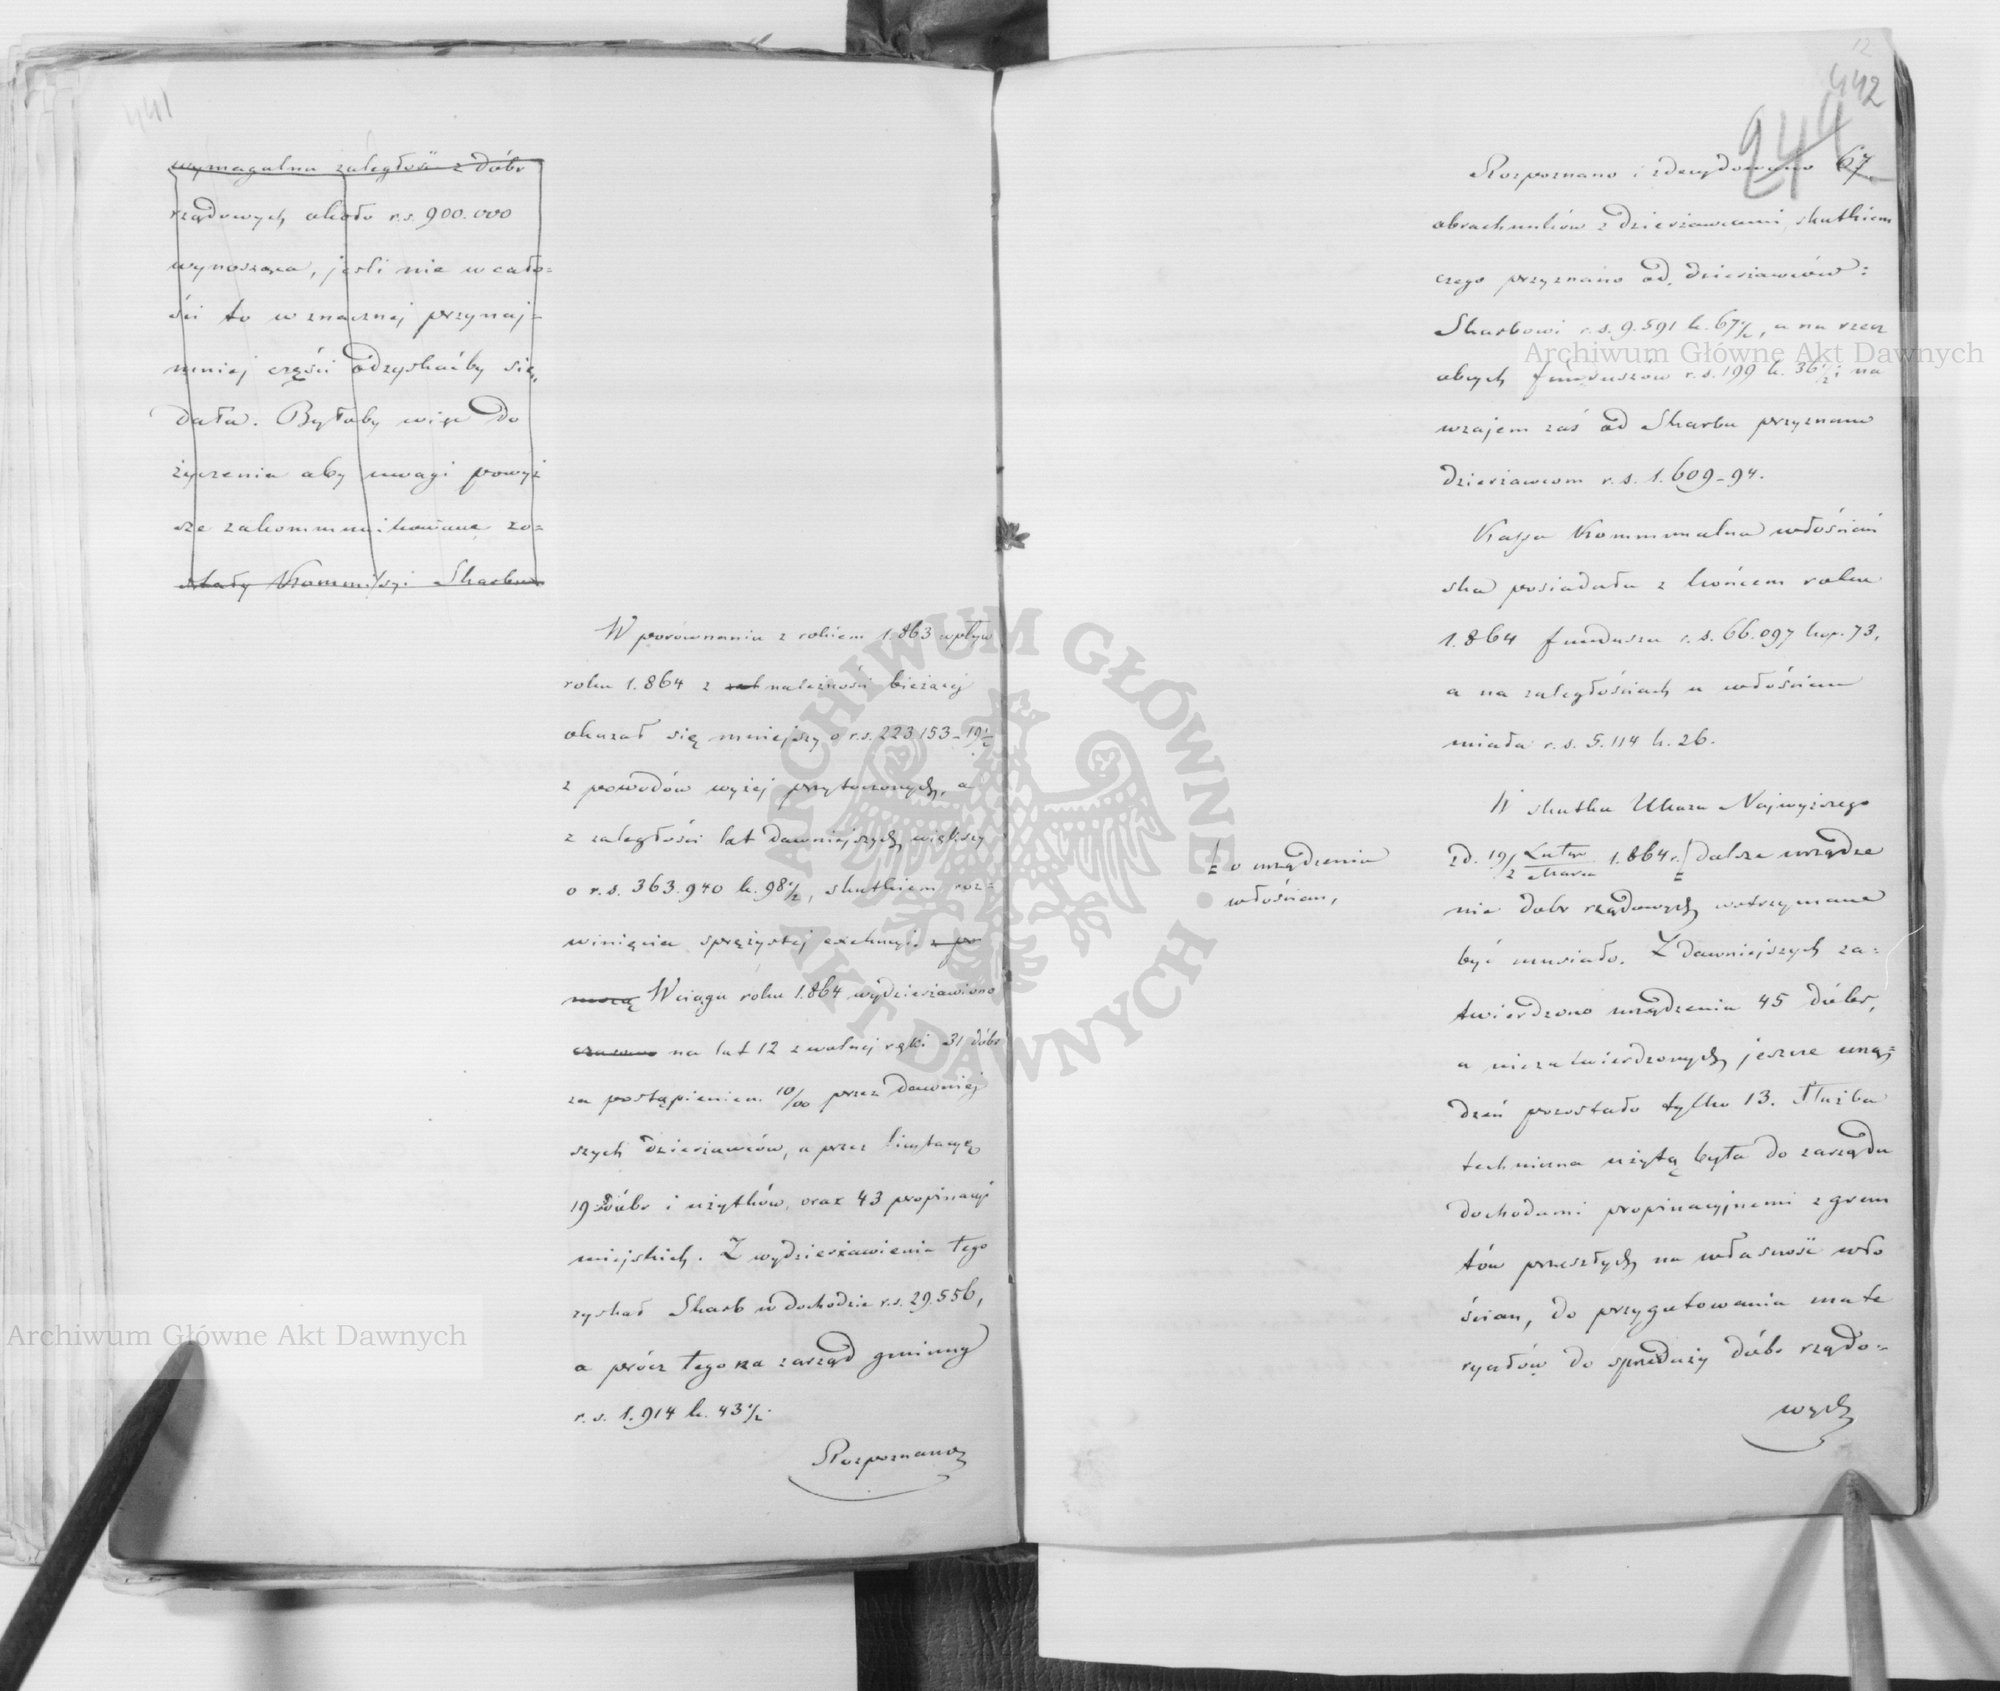 441
wymagalna zaległość z dóbr
rządowych około r.s. 900.000
wynosząca, jeśli nie w cało=
ści to w znacznej przynaj=
mniej części odzyskaćby się
dała. Byłoby więc do
życzenia aby uwagi powyż
sze zakommunikowane zo=
stały Kommissyi Skarbu
W porównaniu z rokiem 1.863 wpływ
roku 1.864 z należności bieżącej
okazał się mniejszy o r.s. 223153-19½
z powodów wyżej przytoczonych, a
z zaległości lat dawniejszych większy
o r.s. 363.940 k. 98½, skutkiem roz=
winięcia sprężystej exekucyi z po
mocą W ciągu roku 1.864 wydzierżawiono
czasowo na lat 12 z wolnej ręki 31 dóbr
za postąpieniem 10/00 przez dawniej
szych dzierżawców, a przez licytacyę
19 dóbr i użytków, oraz 43 propinacyi
miejskich. Z wydzierżawienia tego
zyskał Skarb w dochodzie r.s. 29.556,
a prócz tego na zarząd gminny
r.s. 1.914 k. 43½.
Rozpoznano
12
442
244
Rozpoznano i zdecydowano 67
obrachunków z dzierżawcami, skutkiem
czego przyznano od dzierżawców:
Skarbowi r.s. 9.591 k. 67½, a na rzecz
obcych funduszów r.s. 199 k. 36½; na
wzajem zaś od Skarbu przyznano
dzierżawcom r.s. 1.609-94.
Kassa Kommunalna włościań
ska posiadała z końcem roku
1.864 funduszu r.s. 66.097 kop. 73,
a na zaległościach u włościan
miała r.s. 5.114 k. 26.
W skutku Ukazu Najwyższego
z d. 19/2 Lutego/Marca 1.864 r. dalsze urządze
o urządzeniu
włościan,
nie dóbr rządowych wstrzymane
być musiało. Z dawniejszych za=
twierdzono urządzenia 45 dóbr,
a niezatwierdzonych jeszcze urzą=
dzeń pozostało tylko 13. Służba
techniczna użytą była do zarządu
dochodami propinacyjnemi z grun
tów przeszłych na własność wło
ścian, do przygotowania mate
ryałów do sprzedaży dóbr rządo=
wych
Archiwum Główne Akt Dawnych
Archiwum Główne Akt Dawnych
ARCHIWUM GŁÓWNE · AKT DAWNYCH ·